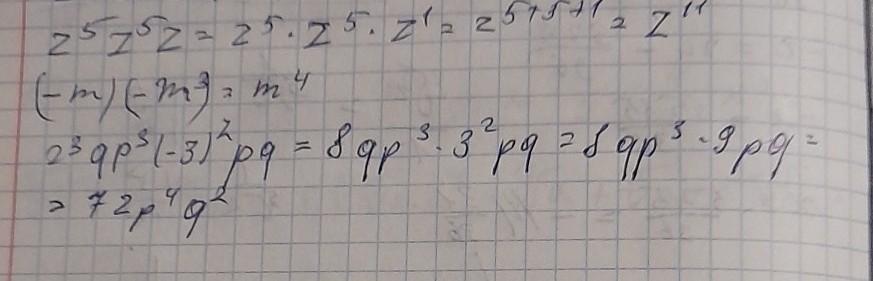 z⁵z⁵z = z⁵ · z⁵ · z¹ = z⁵⁺⁵⁺¹ = z¹¹
(-m)(-m³) = m⁴
2³qp³(-3)²pq = 8qp³ · 3²pq = 8qp³ · 9pq =
= 72p⁴q²